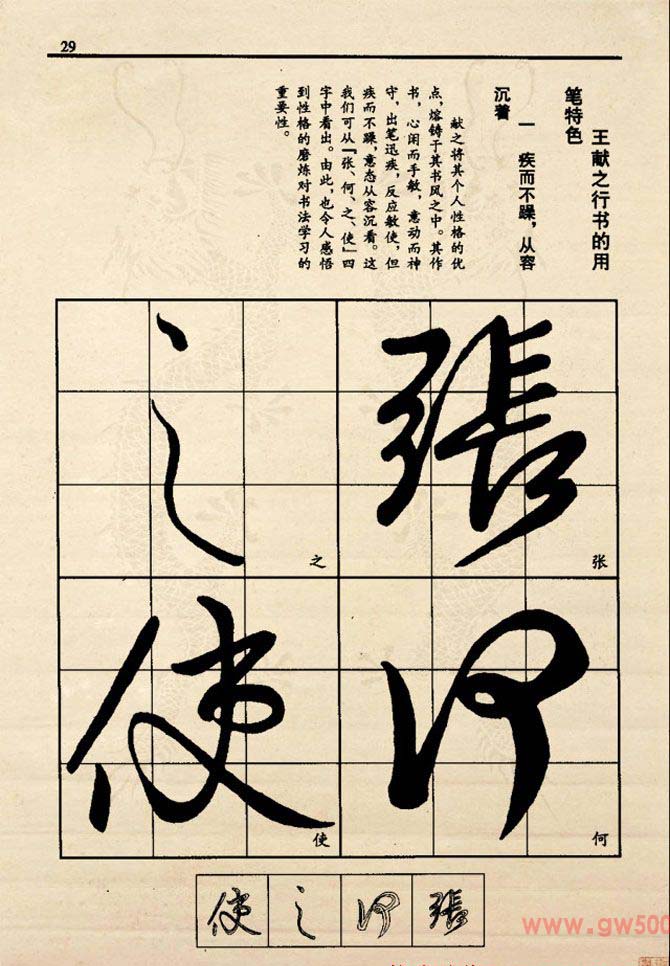 29
王献之行书的用
笔特色
一 疾而不躁，从容
沉着
献之将其个人性格的优
点，熔铸于其书风之中。其作
书，心闲而手敏，意动而神
守，出笔迅疾，反应敏使，但
疾而不躁，意态从容沉看。这
我们可从『张、何、之、使』四
字中看出。由此，也令人感悟
到性格的磨炼对书法学习的
重要性。
張
张
何
何
之
之
使
使
張
何
之
使
www.gw500